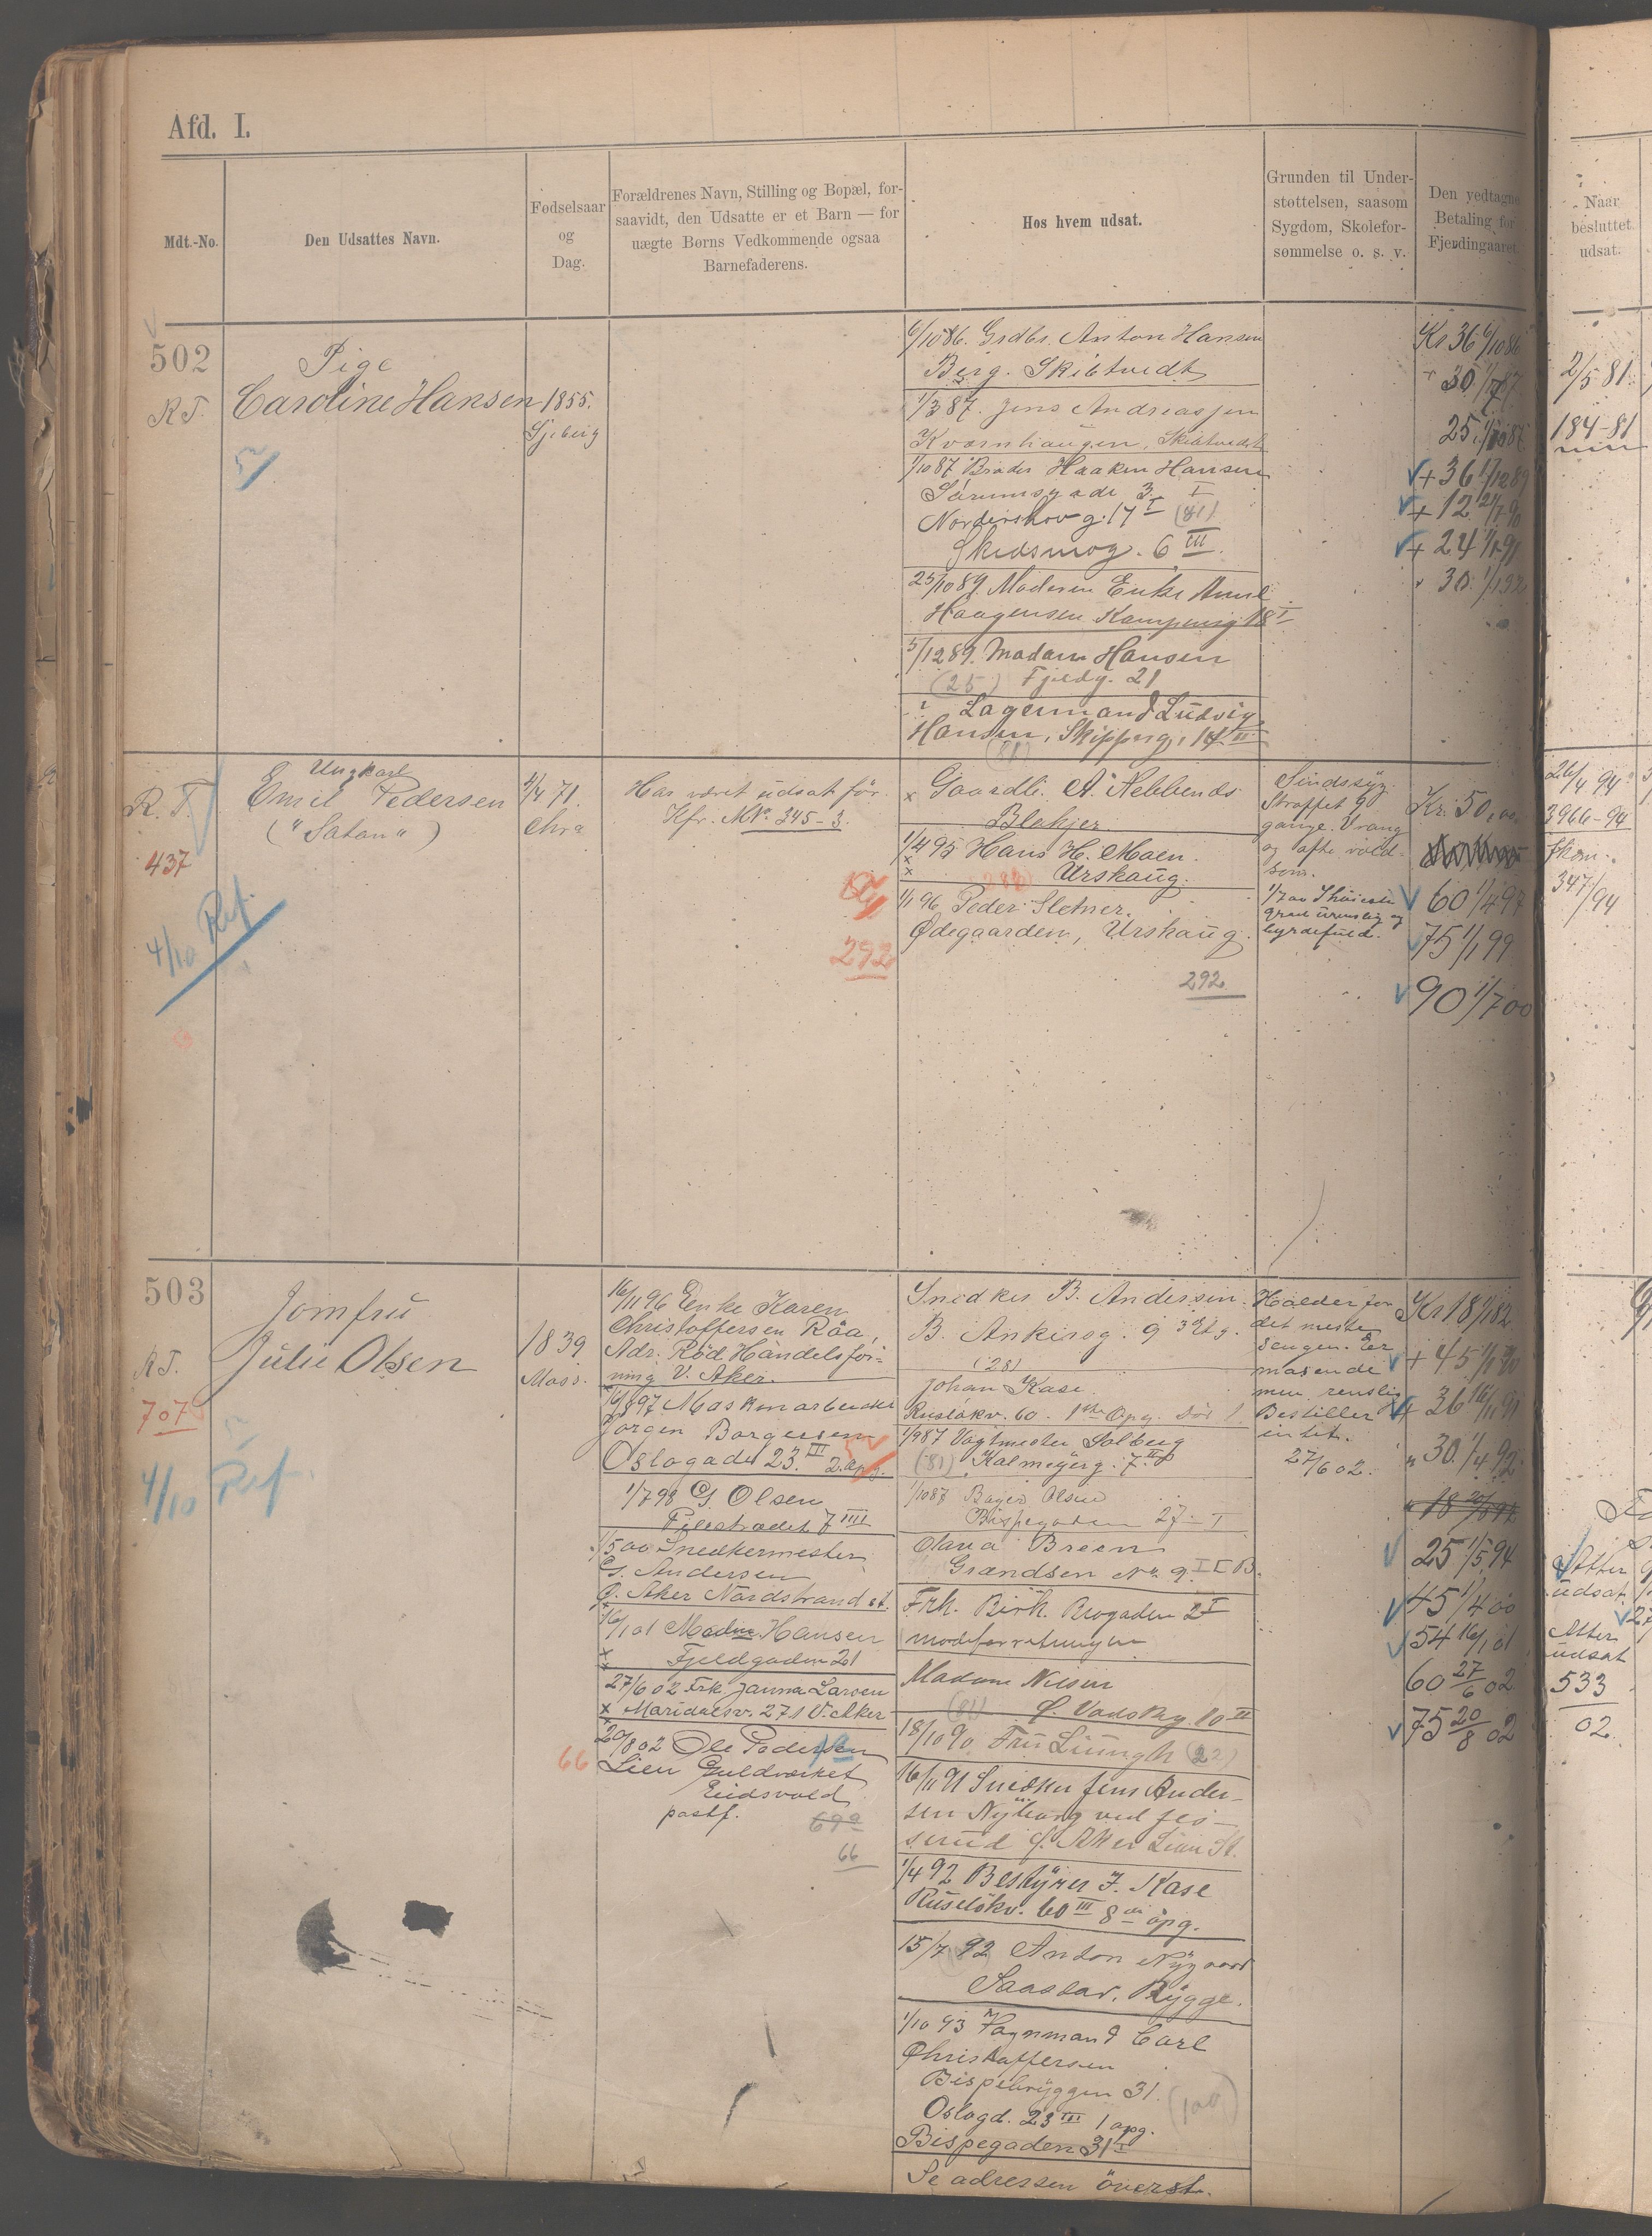 Afd. I.
Mdt.-No.
Den Udsattes Navn.
Fødselsaar
og
Dag.
Forældrenes Navn, Stilling og Bopæl, for-
saavidt, den Udsatte er et Barn — for
uægte Børns Vedkommende ogsaa
Barnefaderens.
Hos hvem udsat.
Grunden til Under-
støttelsen, saasom
Sygdom, Skolefor-
sømmelse o. s. v.
Den vedtagne
Betaling for
Fjerdingaaret.
Naar
besluttet
udsat.
502
R.T.
Pige
Caroline Hansen
1855.
6/10 86. Grdbr. Anton Hansen
Berg. Skibtvedt
1/3 87. Jens Andreassen
Kvernhaugen, Skibtvedt
1/10 87 Broder Haaken Hansen
Sørumsgade 3 I
Norderhovg. 17 I (81)
Skedsmog. 6 III.
25/10 89 Moderen Enke
Haagensen Kampensg 18 I
5/12 89. Madam Hansen
(25) Fjeldg. 21
Lagermand Ludvig
Hansen, Skipperg. 14 III
(81)
Kr 36 6/10 86
" 30. 1/ 87
25. 1/10 87
+ 36 1/12 89
+ 12. 21/7 90
+ 24 1/1 91
" 30. 1/1 92
2/5 81.
184-81
R. T.
437
4/10 Ref.
Ungkarl
Emil Pedersen
("Satan")
4/4 71.
Chra
Har været udsat før.
Kfr. M.No. 345-3.
292
× Gaardbr. A. Nebbends
Blakjer
1/4 95 Hans H. Moen.
Urskaug.
1/1 96 Peder Sletner.
Ødegaarden, Urskaug.
292
Sindssyg.
Straffet 9
gange. Vrang
og ofte vold-
som.
1/7 00 I høieste
grad urenslig og
byrdefuld.
Kr. 50,00
60 1/4 97
75 1/1 99
90 1/7 00
26/4 94
3966-94
347/94
503
R.T.
707
4/10 Ref.
Jomfru
Julie Olsen
1839
Moss.
16/11 96 Enke Karen
Christoffersen Røa,
Adr. Rød Handelsfor-
ning V. Aker.
16/8 97 Maskinarbeider
Jørgen Borgersen
Oslogade 23. III 2. opg.
1/7 98 G. Olsen
Pilestrædet 7 IIII
1/5 00 Snedkermester
G. Andersen
Ø. Aker Nordstrand st.
16/1 01 Madm Hansen
Fjeldgaden 21
27/6 02 Frk. Janna Larsen
× Maridalsv. 271 V. Aker
20/8 02 Ole Pedersen
66
Lien Guldverket
Eidsvold
postf.
699
66
Snedker B. Andersen.
B. Ankersg. 9 3 Etg.
(28)
Johan Kase
Ruseløkv. 60. 1ste Opg. Dør 1.
1/9 87 Vagtmester Solberg
(81) Kalmeyerg. 7. II
1/10 87 Bager Olsen
Bispegaden 27. I
Olava Breen
Grændsen No. 9 II B.
Frk. Birk. Brogaden 2 I
modeforretningen
Madam Nilsen
(81) C. Vads Bg 10 II
18/10 90 Fru Liungh (22)
16/11 91 Snedker Jens Ander-
sen Nyborg ved Jes-
serud Ø. Aker Lian St.
1/4 92 Bestyrer J. Kase
Ruseløkv. 60 III 8de opg.
15/7 92 Anton Nygaard
Saastad. Rygge.
1/10 93 Vognmand Carl
Christoffersen
Bispebryggen 31.
Oslogd. 23 III 1 opg.
(100)
Bispegaden 31 I
Se adressen øverst.
Holder for
det meste
Sengen. Er
masende
men renslig
Bestiller
intet.
27/6 02.
Kr 18 1/1 82
+ 45 1/1 90
+ 36 16/11 91
" 30. 1/4 92
25 1/5 94
45 1/4 00
54 16/1 01
60 27/6 02
75 20/8 02
Atter
udsat
Atter
udsat
533
02.